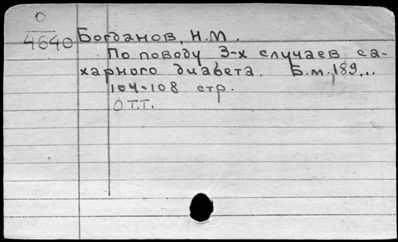 О
4640 Богданов, Н.М.
По поводу 3-х случаев са-
харного диабета. Б.м., 189...
104-108 стр.
ОТТ.